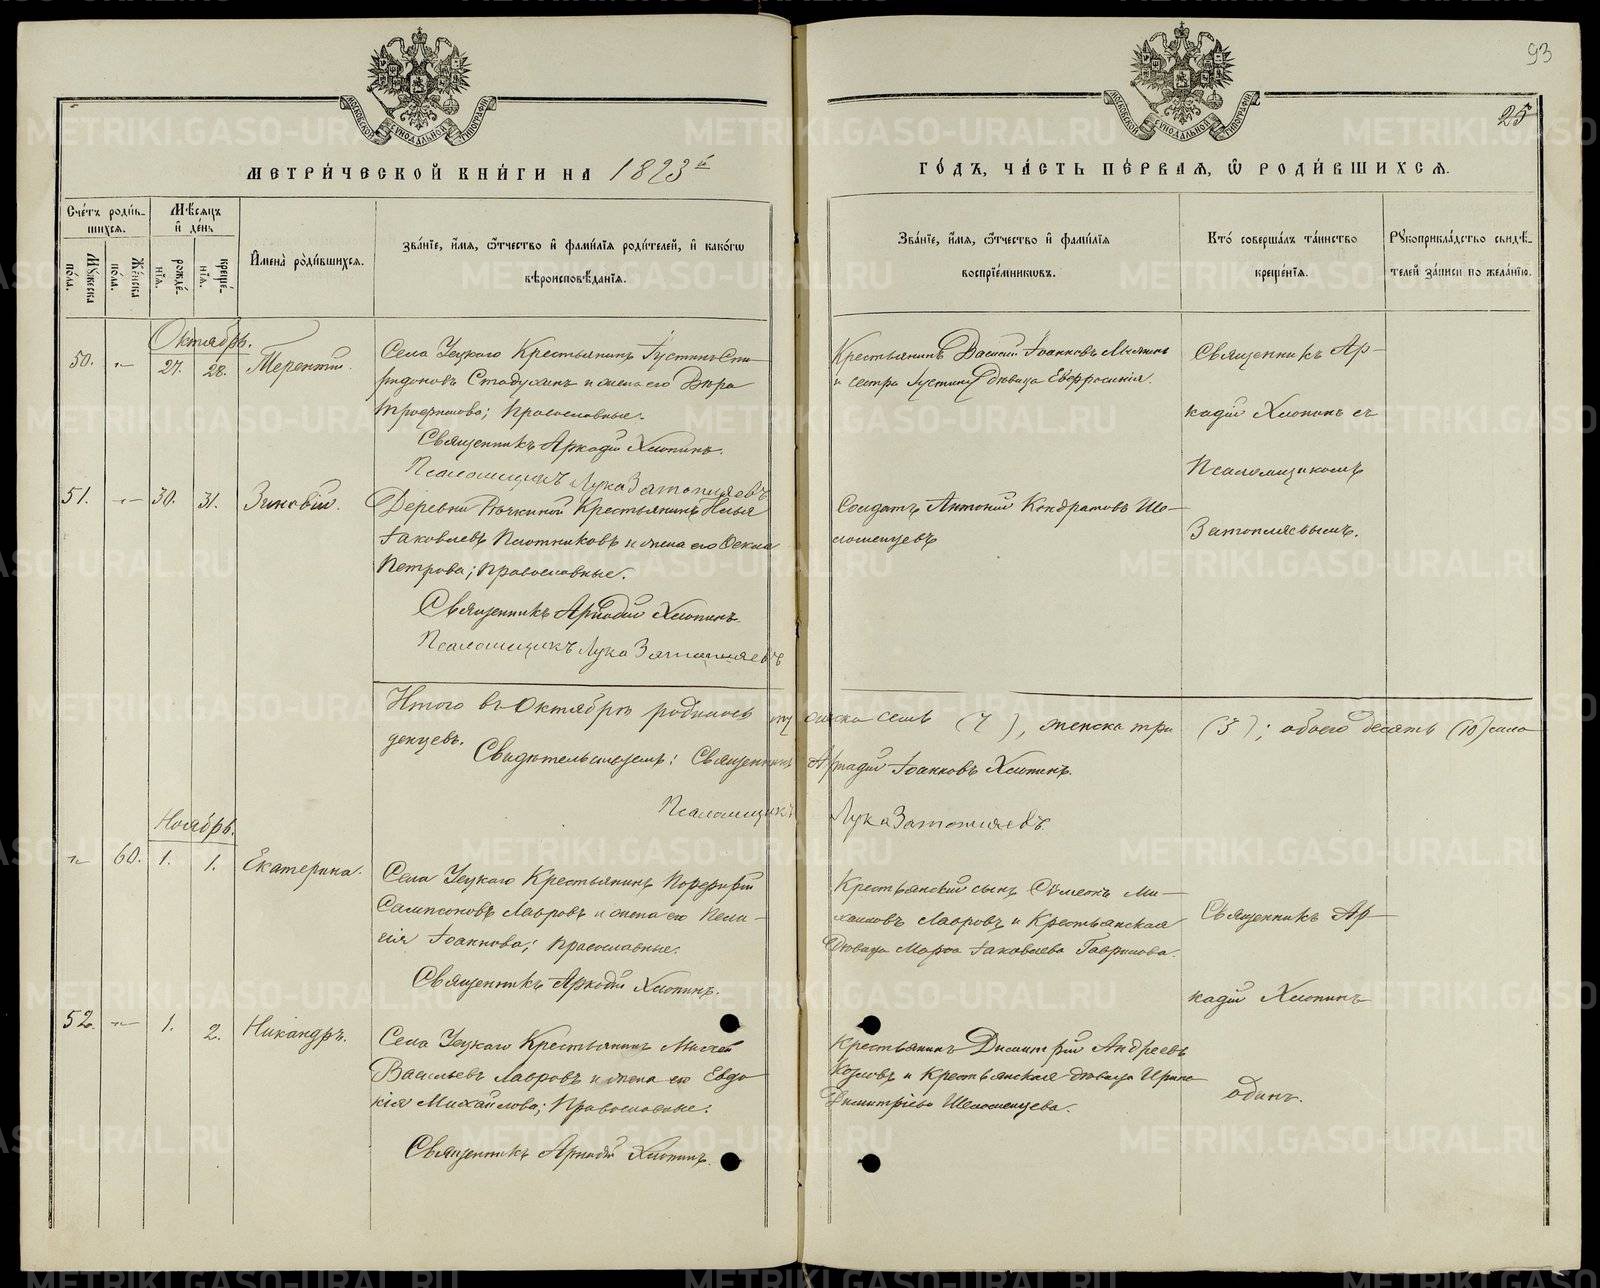 93
25
МОСКОВСКОЙ СѴНОДАЛЬНОЙ ТИПОГРАФІИ
МОСКОВСКОЙ СѴНОДАЛЬНОЙ ТИПОГРАФІИ
МЕТРИ́ЧЕСКОЙ КНИ́ГИ НА 1823й
ГО́ДЪ, ЧА́СТЬ ПЕ́РВАЯ, Ѽ РОДИ́ВШИХСЯ.
Сче́тъ роди́в-
шихся.
Мꙋ́жеска по́ла.
Же́нска по́ла.
Мѣ́сяцъ
и҆ де́нь
рожде́-
нїя.
креще́-
нїя.
И҆мена̀ роди́вшихся.
Зва́нїе, и҆́мя, ѻ҆́тчество и҆ фами́лїя роди́телей, и҆ како́гѡ
вѣроисповѣ́данїя.
Зва́нїе, и҆́мя, ѻ҆́тчество и҆ фами́лїя
воспрїе́мникѡвъ.
Кто̀ соверша́лъ та́инство
креще́нїя.
Рꙋкоприкла́дство свидѣ́-
телей за́писи по жела́нїю.
Октябрь.
50. „ 27. 28. Терентій.
Села Уецкаго Крестьянинъ Іустинъ Спи-
ридоновъ Стадухинъ и жена его Вѣра
Трофимова; Православные.
Священникъ Аркадій Хлопинъ.
Псаломщикъ Лука Затопляевъ
Крестьянинъ Василій Іоанновъ
и сестра Іустина дѣвица Евфросинія.
Священникъ Ар-
кадій Хлопинъ съ
Псаломщикомъ
Затопляевымъ.
51. „ 30. 31. Зиновій.
Деревни Крестьянинъ Илья
Іаковлевъ Плотниковъ и жена его Ѳекла
Петрова; Православные.
Священникъ Аркадій Хлопинъ.
Псаломщикъ Лука Затопляевъ
Солдатъ Антоній Кондратовъ Ше-
ломенцевъ
Итого въ Октябрѣ родилось мужеска семь (7), женска три (3); обоего десять (10) мла-
денцевъ.
Свидѣтельствуемъ: Священникъ Аркадій Іоанновъ Хлопинъ.
Псаломщикъ Лука Затопляевъ
Ноябрь.
„ 60. 1. 1. Екатерина.
Села Уецкаго Крестьянинъ Порфирій
Сампсоновъ Лавровъ и жена его Пела-
гія Іоаннова; Православные.
Священникъ Аркадій Хлопинъ.
Крестьянскій сынъ Сѵмеонъ Ми-
хаиловъ Лавровъ и Крестьянская
дѣвица Марѳа Іаковлева Гаврилова.
Священникъ Ар-
кадій Хлопинъ
одинъ.
52. „ 1. 2. Никандръ.
Села Уецкаго Крестьянинъ
Васильевъ Лавровъ и жена его Евдо-
кія Михаилова; Православные.
Священникъ Аркадій Хлопинъ.
Крестьянинъ Димитрій Андреевъ
Козловъ и Крестьянская дѣвица Ирина
Димитріева Шеломенцева.
METRIKI.GASO-URAL.RU